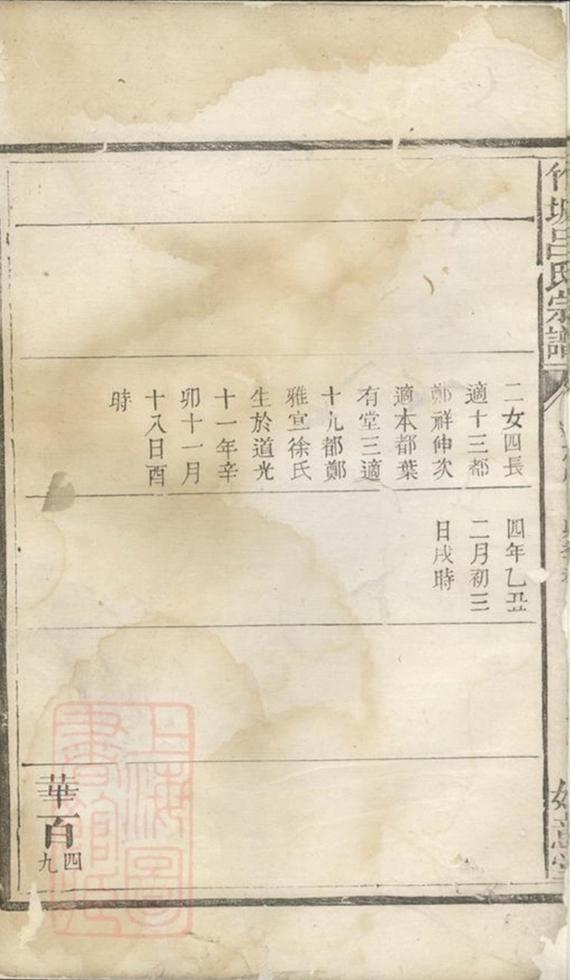 竹城呂氏宗譜
二女四長
適十三都
鄭祥仲次
適本都葉
有堂三適
十九都鄭
雅宣徐氏
生於道光
十一年辛
卯十一月
十八日酉
時
四年乙丑
二月初三
日戌時
華百
四九
上海圖書館藏